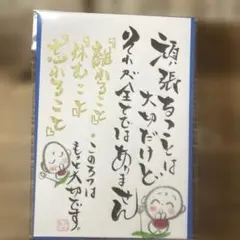 頑張ることは
大切だけど
それが全てではありません
『離れること』
『休むこと』
『忘れること』
・このろつは
もっと大切です。